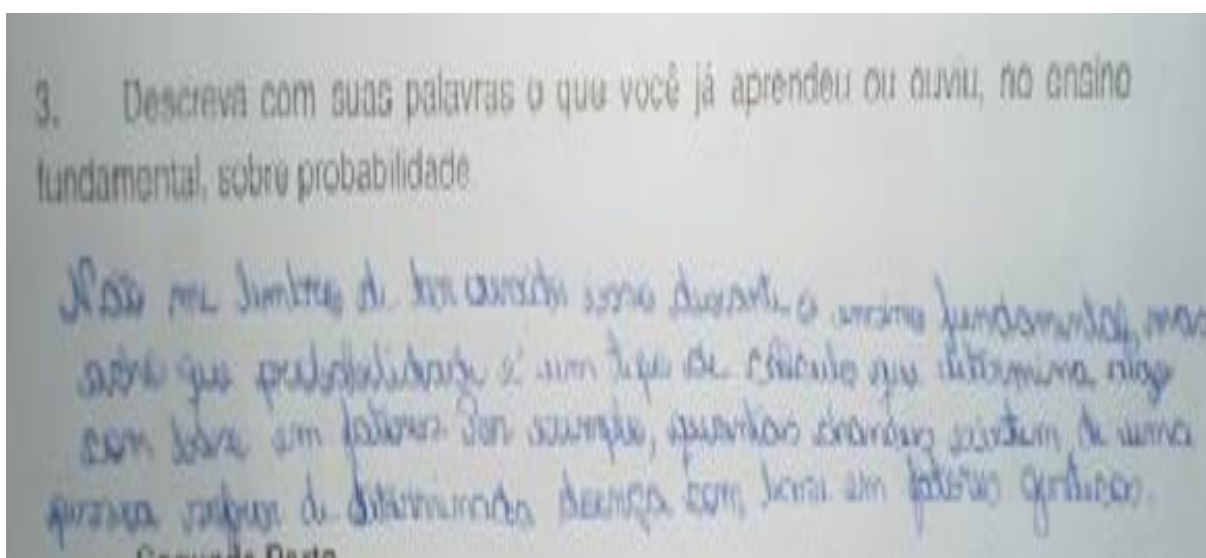 3. Descreva com suas palavras o que você já aprendeu ou ouviu, no ensino
fundamental, sobre probabilidade
Não me lembro de ter ouvido isso durante o ensino fundamental, mas
acho que probabilidade é um tipo de cálculo que determina algo
com base em fatores. Por exemplo, quantas chances existem de uma
pessoa sofrer de determinada doença com base em fatores genéticos.
Segunda Parte